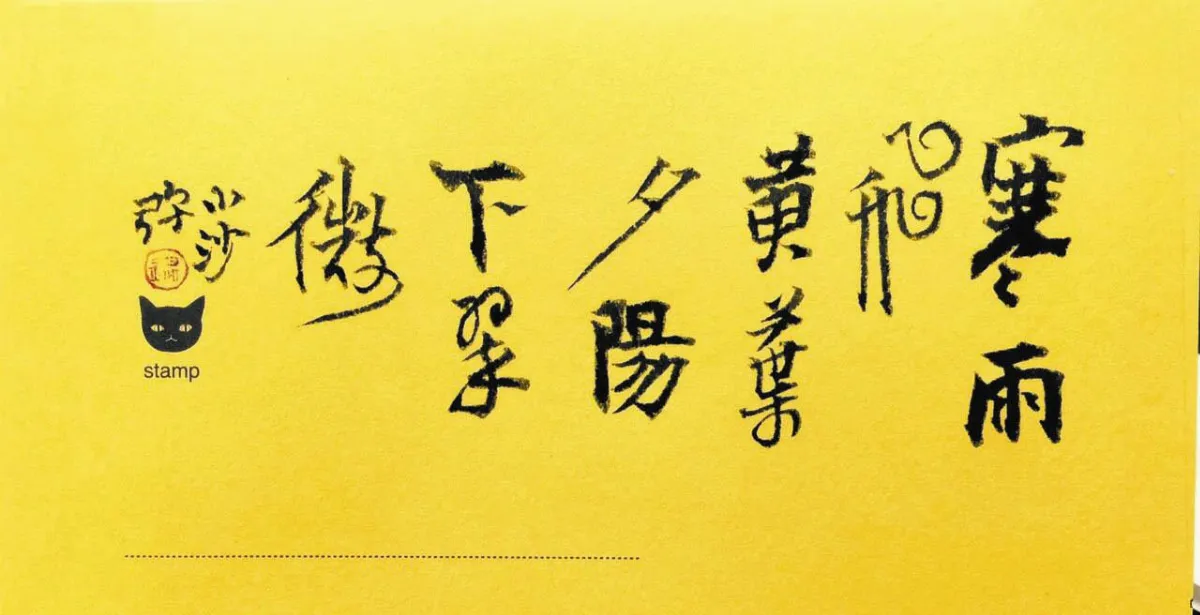 寒雨
飛
黄葉
夕陽
下翠
微
小莎
stamp